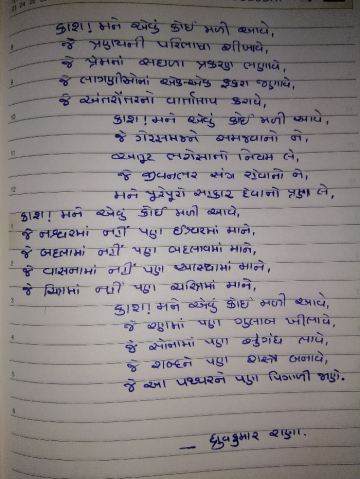 કાશ! મને એવું કોઈ મળી આવે,
જે પ્રણયની પરિભાષા શીખવે,
જે પ્રેમનાં સઘળા પ્રકરણ ભણાવે,
જે લાગણીઓનાં એક-એક ફકરા જણાવે,
જે અંતરોત્તરનો વાર્તાલાપ કરાવે,
કાશ! મને એવું કોઈ મળી આવે,
જે ગેરસમજને સમજવાનો ને,
અતૂટ ભરોસાનો નિયમ લે,
જે જીવનભર સંગ રહેવાનો ને,
મને પૂરેપૂરો સહકાર દેવાનો પ્રણ લે,
કાશ! મને એવું કોઈ મળી આવે,
જે નશ્વરમાં નહીં પણ ઈશ્વરમાં માને,
જે બદલામાં નહીં પણ બદલાવમાં માને,
જે વાસનામાં નહીં પણ આસ્થામાં માને,
જે ચિત્રમાં નહીં પણ ચરિત્રમાં માને,
કાશ! મને એવું કોઈ મળી આવે,
જે રણમાં પણ ગુલાબ ખીલાવે,
જે સોનામાં પણ સુગંધ લાવે,
જે શબ્દને પણ શસ્ત્ર બનાવે,
જે આ પથ્થરને પણ પિગાળી જાણે.
— ધ્રુવકુમાર રાણા.